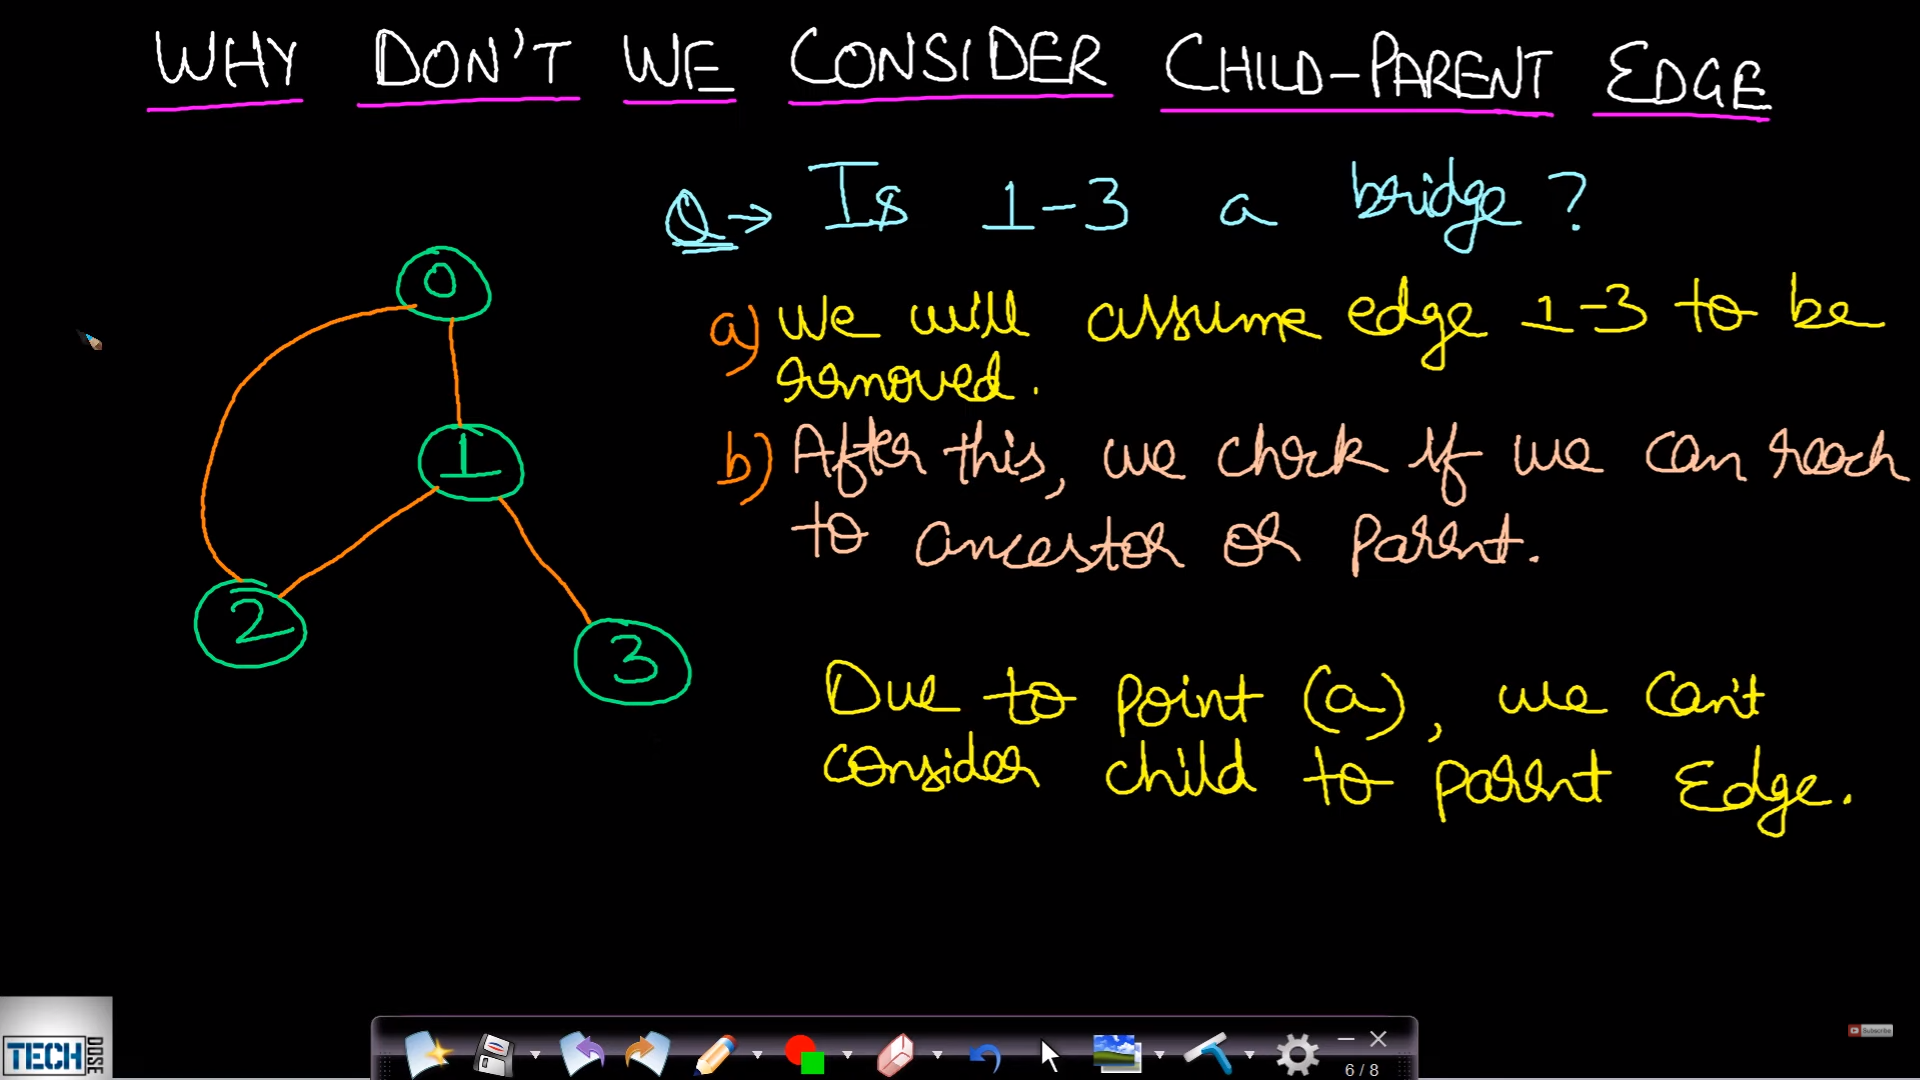 WHY DON'T WE CONSIDER CHILD-PARENT EDGE
Q→ Is 1-3 a bridge?
a) We will assume edge 1-3 to be
removed.
b) After this, we check if we can reach
to ancestor or parent.
Due to point (a), we can't
consider child to parent Edge.
0
1
2
3
TECH
DOSE
Subscribe
6/8